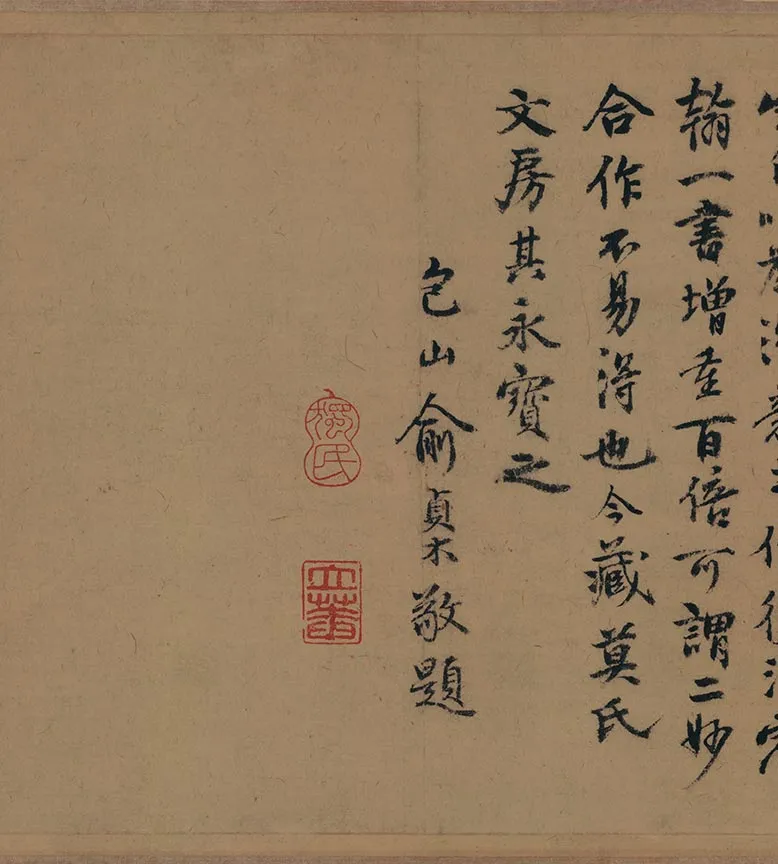 翰一書增重百倍可謂二妙
合作不易得也今藏莫氏
文房其永寶之
包山俞貞木敬題
立菴